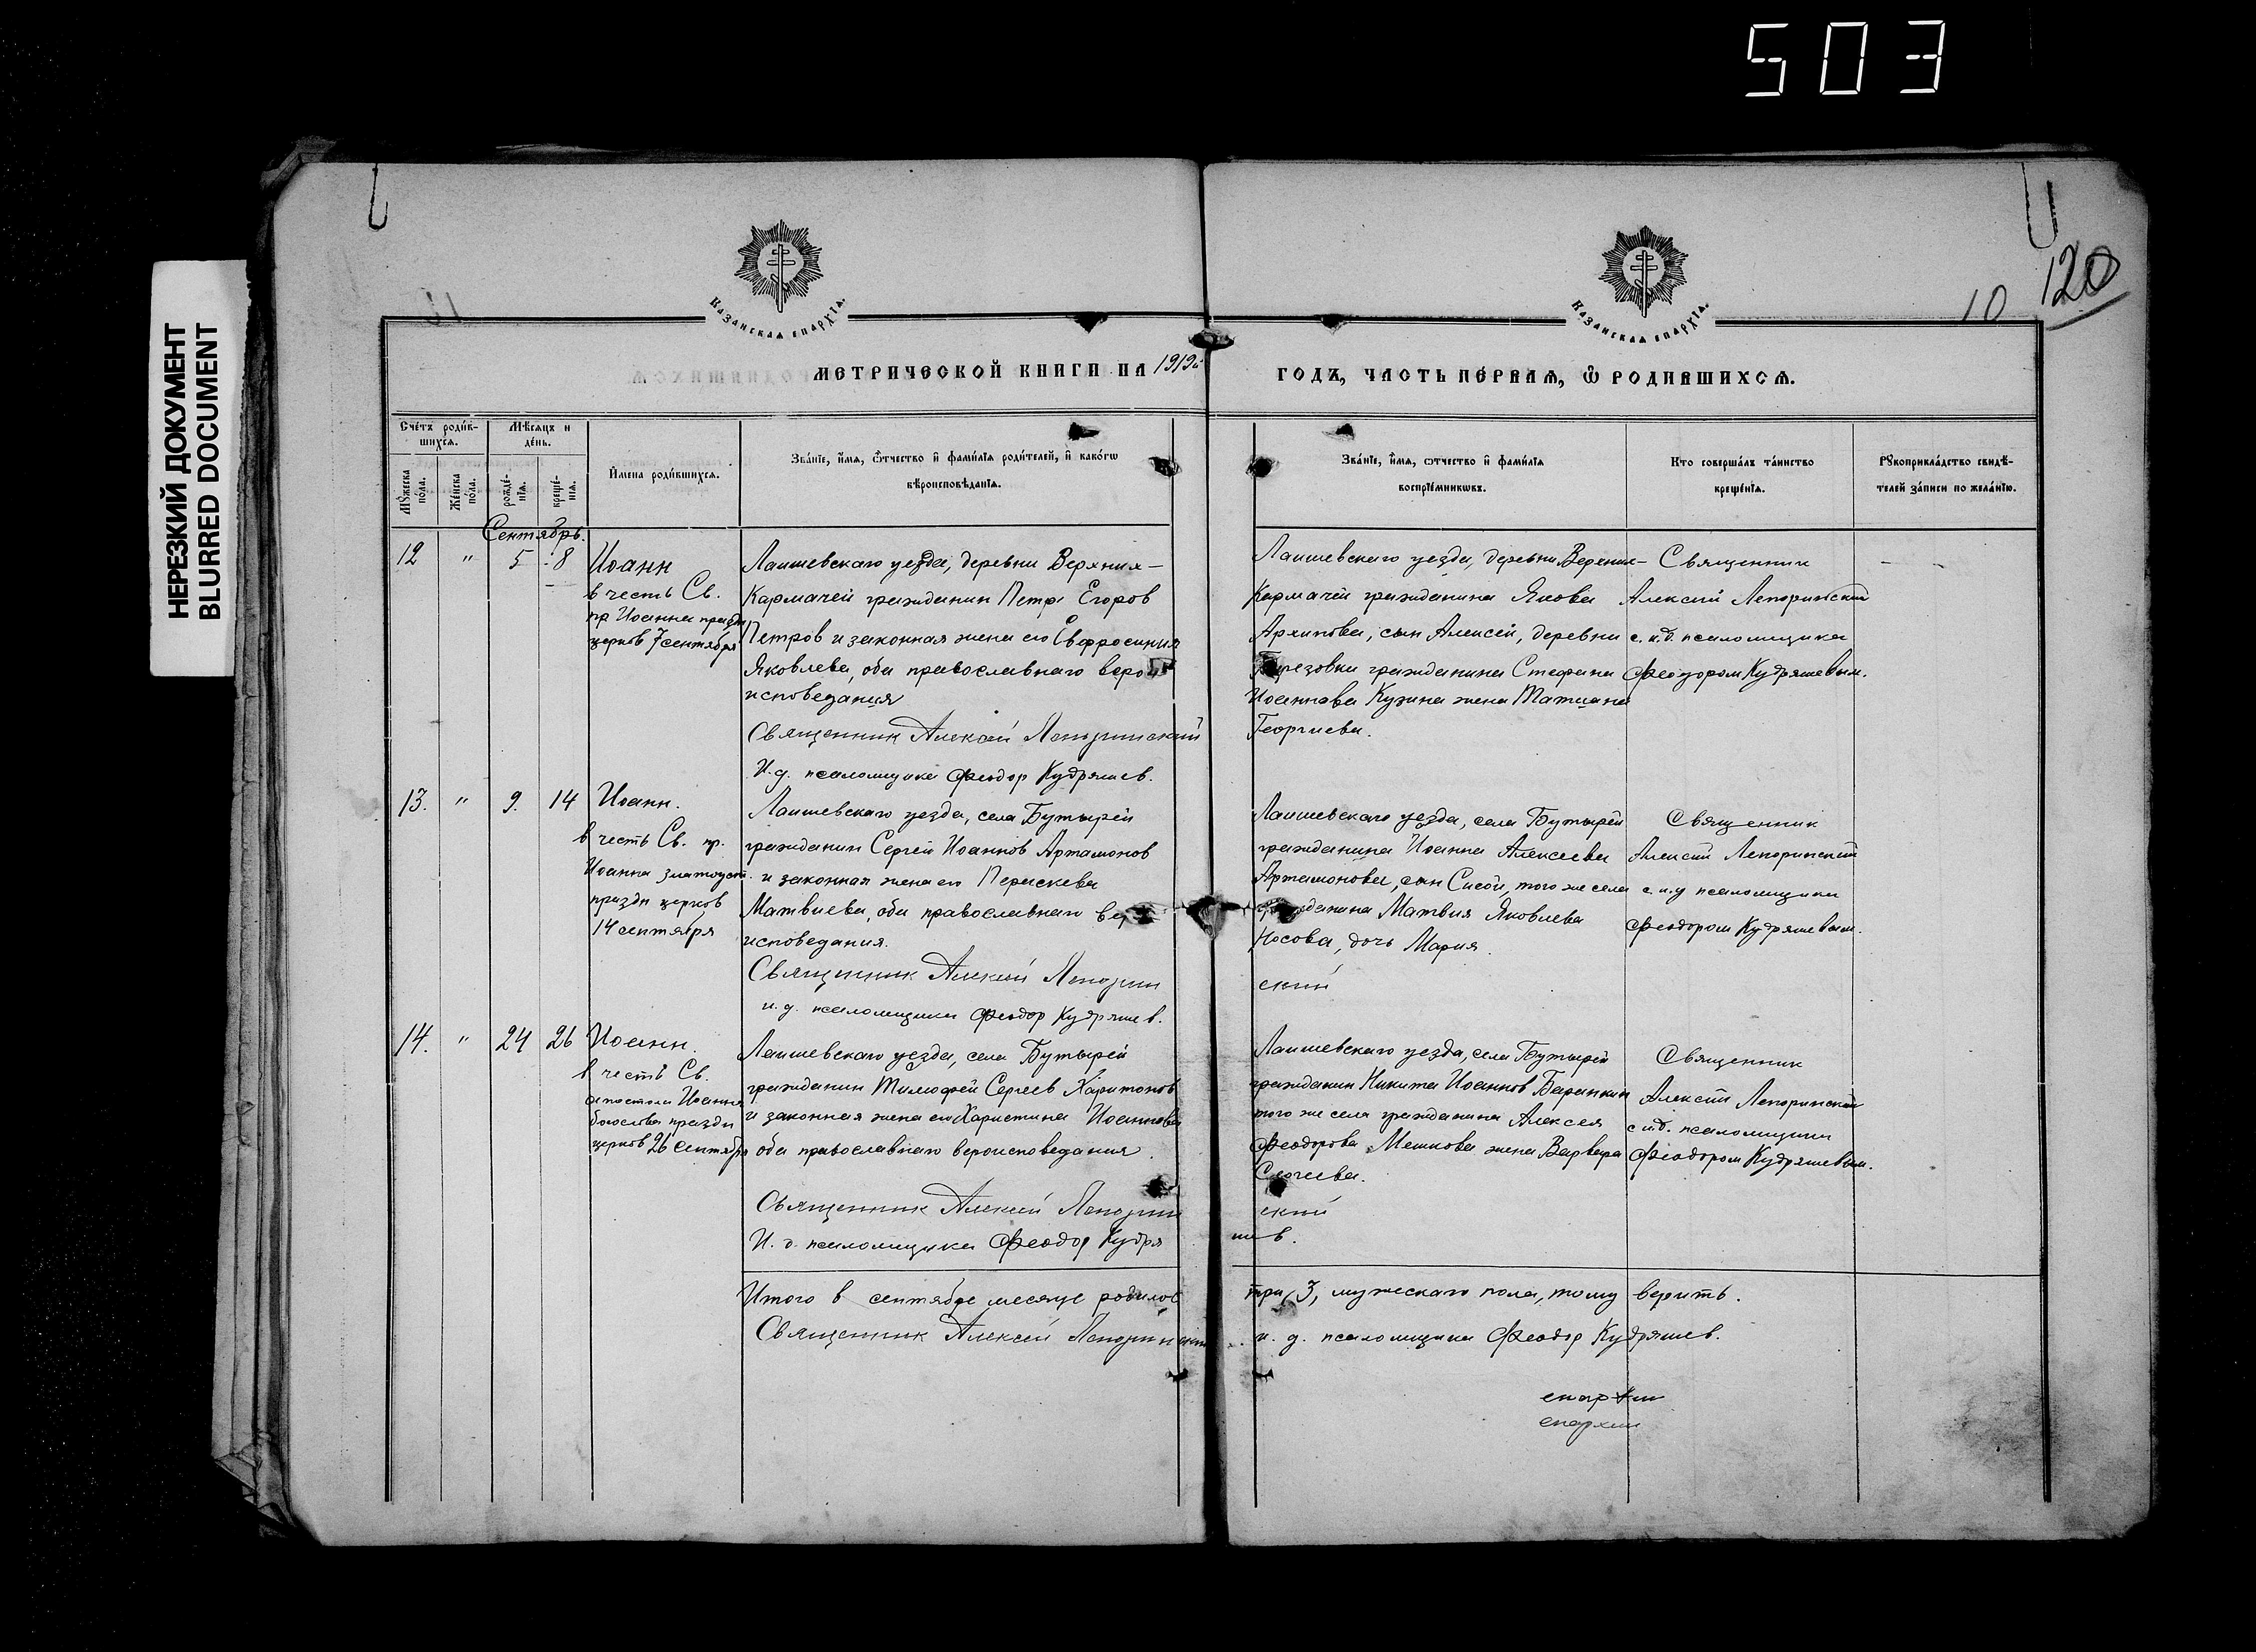 503
НЕРЕЗКИЙ ДОКУМЕНТ
BLURRED DOCUMENT
КАЗАНСКАѦ ЕПАРХІѦ.
КАЗАНСКАѦ ЕПАРХІѦ.
10
120
МЕТРИЧЕСКОЙ КНИГИ НА 1919й
ГОДЪ, ЧАСТЬ ПЕ́РВАѦ, Ѽ РОДИВШИХСѦ.
Сче́тъ роди́в-
шихсѧ.
Мѣ́сѧцъ и
де́нь.
Мꙋ́жеска
по́ла.
Же́нска
по́ла.
рожде́-
нїѧ.
креще́-
нїѧ.
И҆мена роди́вшихсѧ.
Зва́нїе, и҆́мѧ, ѻ҆́тчество и҆ фами́лїѧ роди́телей, и҆ како́гѡ
вѣроисповѣ́данїѧ.
Зва́нїе, и҆́мѧ, ѻ҆́тчество и҆ фами́лїѧ
воспрїе́мникѡвъ.
Кто соверша́лъ та́инство
креще́нїѧ.
Рꙋкоприкла́дство свидѣ́-
телей за́писи по жела́нїю.
Сентябрь.
12 " 5 8 Иоанн
в честь Св.
пр Иоанна праздн
церков 7 сентября
Лаишевскаго уезда, деревни Верхния-
Кармачей гражданин Петр Егоров
Петров и законная жена его Евфросиния
Яковлева, оба православнаго веро
исповедания
Священник Алексий Лепоринский
И.д. псаломщика Феодор Кудряшев.
Лаишевскаго уезда, деревни Верхния-
Кармачей гражданина Якова
Архипова, сын Алексей, деревни
Березовки гражданина Стефана
Иоаннова Кузина жена Татиана
Георгиева.
Священник
Алексий Лепоринский
с и.д. псаломщика
Феодором Кудряшевым.
13. " 9. 14 Иоанн.
в честь Св. пр.
Иоанна Златоуст.
праздн церков
14 сентября
Лаишевскаго уезда, села Бутырей
гражданин Сергей Иоаннов Артамонов
и законная жена его Параскева
Матвиева, оба православнаго веро
исповедания.
Священник Алексий Лепорин
и.д. псаломщика Феодор Кудряшев.
Лаишевскаго уезда, села Бутырей
гражданина Иоанна Алексеева
Артамонова, сын Сисой, того же села
гражданина Матвия Яковлева
Носова, дочь Мария.
ский
Священник
Алексий Лепоринский
с и.д псаломщика
Феодором Кудряшевым.
14. " 24 26 Иоанн.
в честь Св.
апостола Иоанна
богослова праздн
церков 26 сентября
Лаишевскаго уезда, села Бутырей
гражданин Тимофей Сергеев Харитонов
и законная жена его Харистина Иоаннова
оба православнаго вероисповедания.
Священник Алексий Лепорин
И. д. псаломщика Феодор Кудря
Лаишевскаго уезда, села Бутырей
гражданин Никита Иоаннов Баранкин
того же села гражданина Алексея
Феодорова Мешкова жена Варвара
Сергиева.
ский
шев.
Священник
Алексий Лепоринский
с и.д. псаломщика
Феодором Кудряшевым.
Итого в сентябре месяце родилос три, 3, мужескаго пола, тому верить.
Священник Алексей Лепоринский и. д. псаломщика Феодор Кудряшев.
епархии
епархии